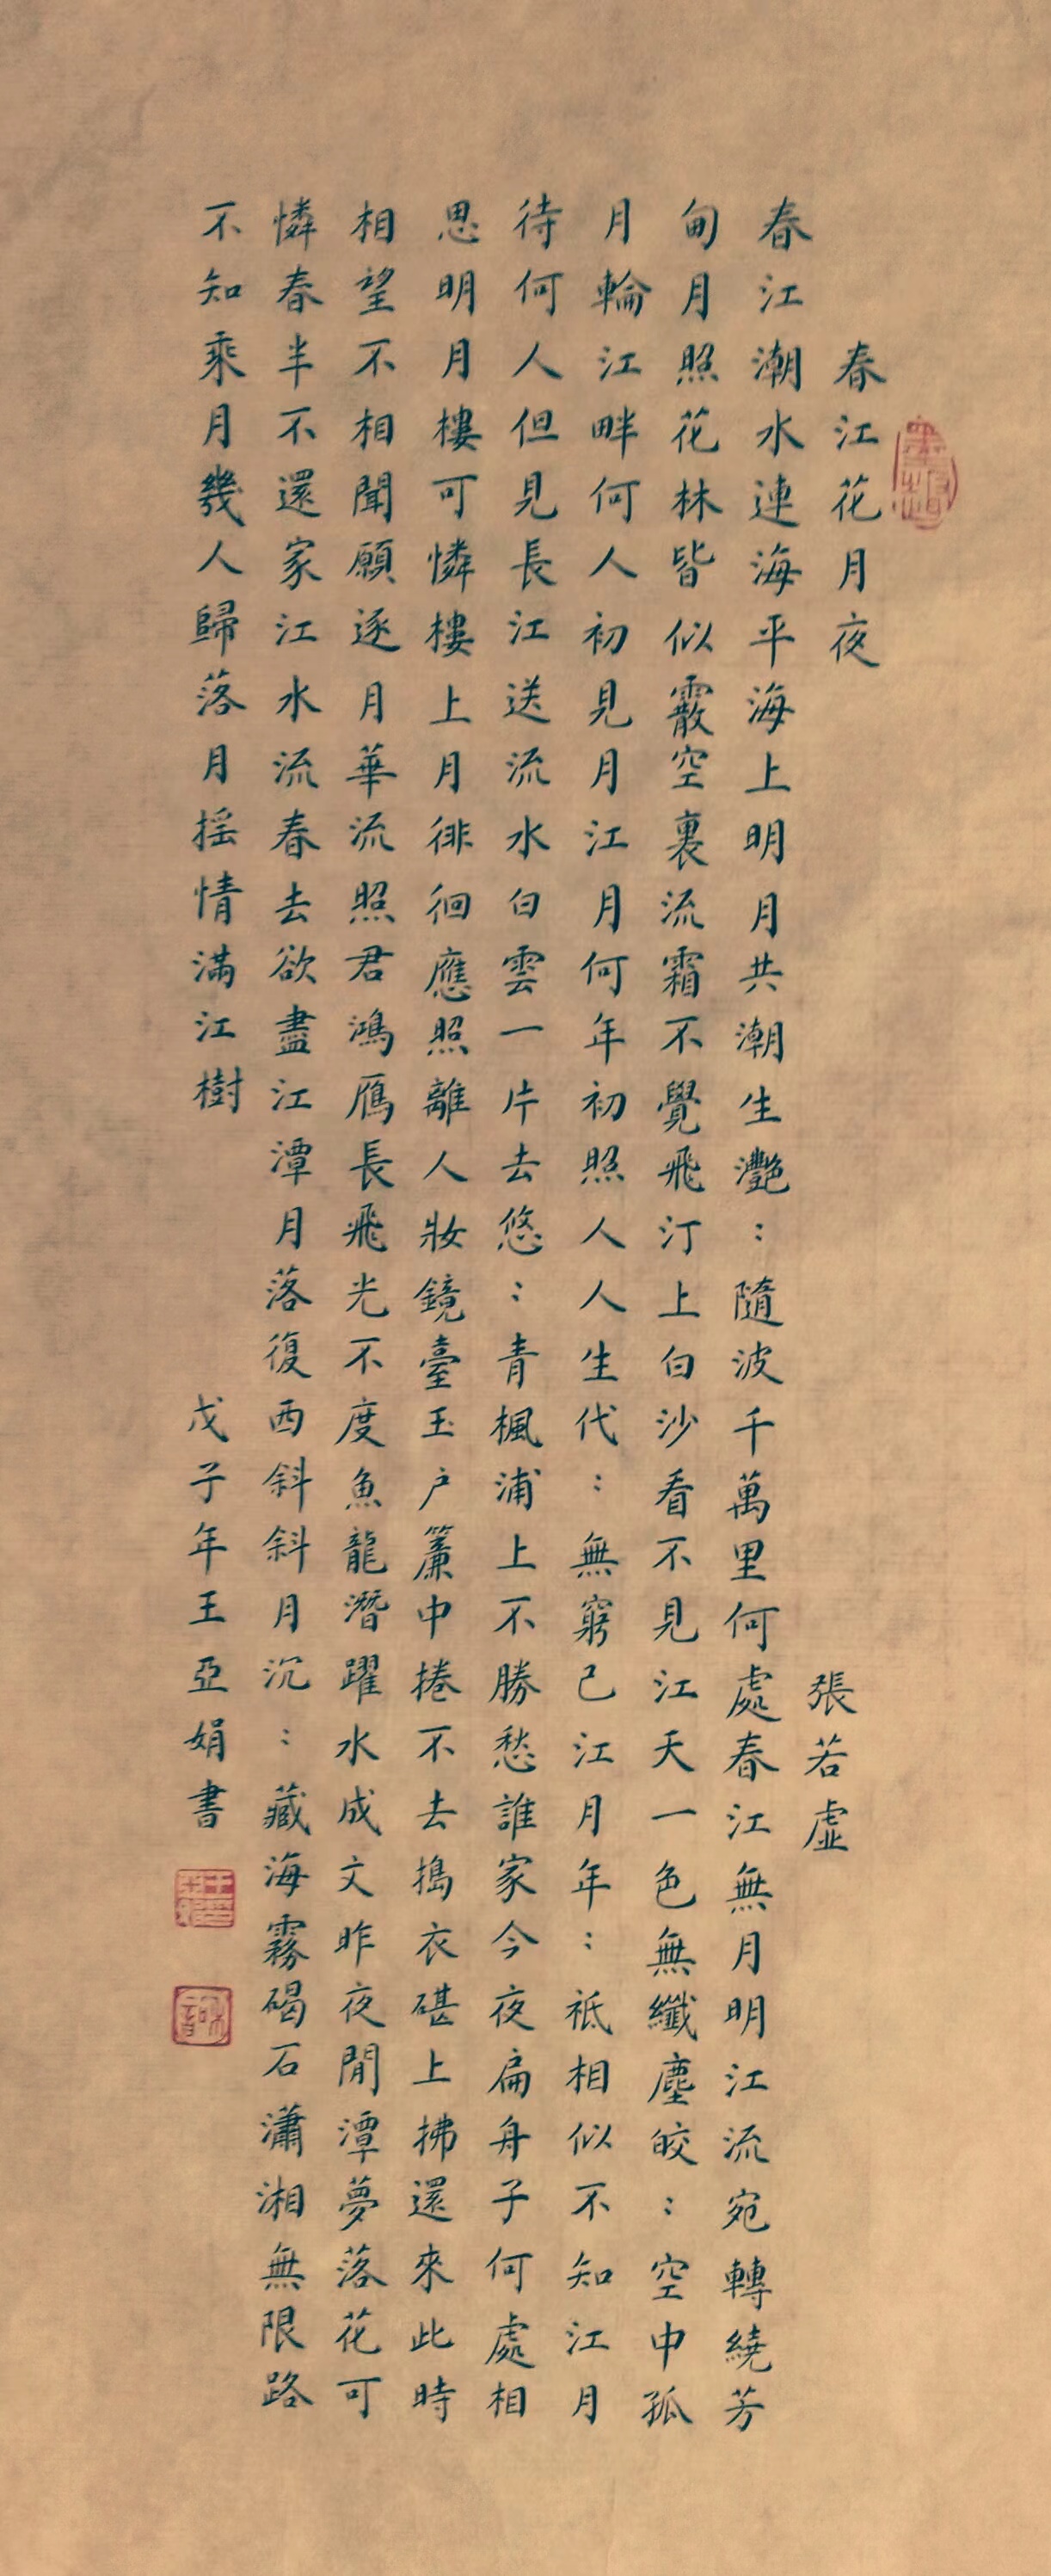 春江花月夜
張若虛
春江潮水連海平海上明月共潮生灩：隨波千萬里何處春江無月明江流宛轉繞芳
甸月照花林皆似霰空裏流霜不覺飛汀上白沙看不見江天一色無纖塵皎：空中孤
月輪江畔何人初見月江月何年初照人人生代：無窮已江月年：祗相似不知江月
待何人但見長江送流水白雲一片去悠：青楓浦上不勝愁誰家今夜扁舟子何處相
思明月樓可憐樓上月徘徊應照離人妝鏡臺玉户簾中捲不去搗衣碪上拂還來此時
相望不相聞願逐月華流照君鴻鴈長飛光不度魚龍潛躍水成文昨夜閒潭夢落花可
憐春半不還家江水流春去欲盡江潭月落復西斜斜月沉：藏海霧碣石瀟湘無限路
不知乘月幾人歸落月摇情滿江樹
戊子年王亞娟書